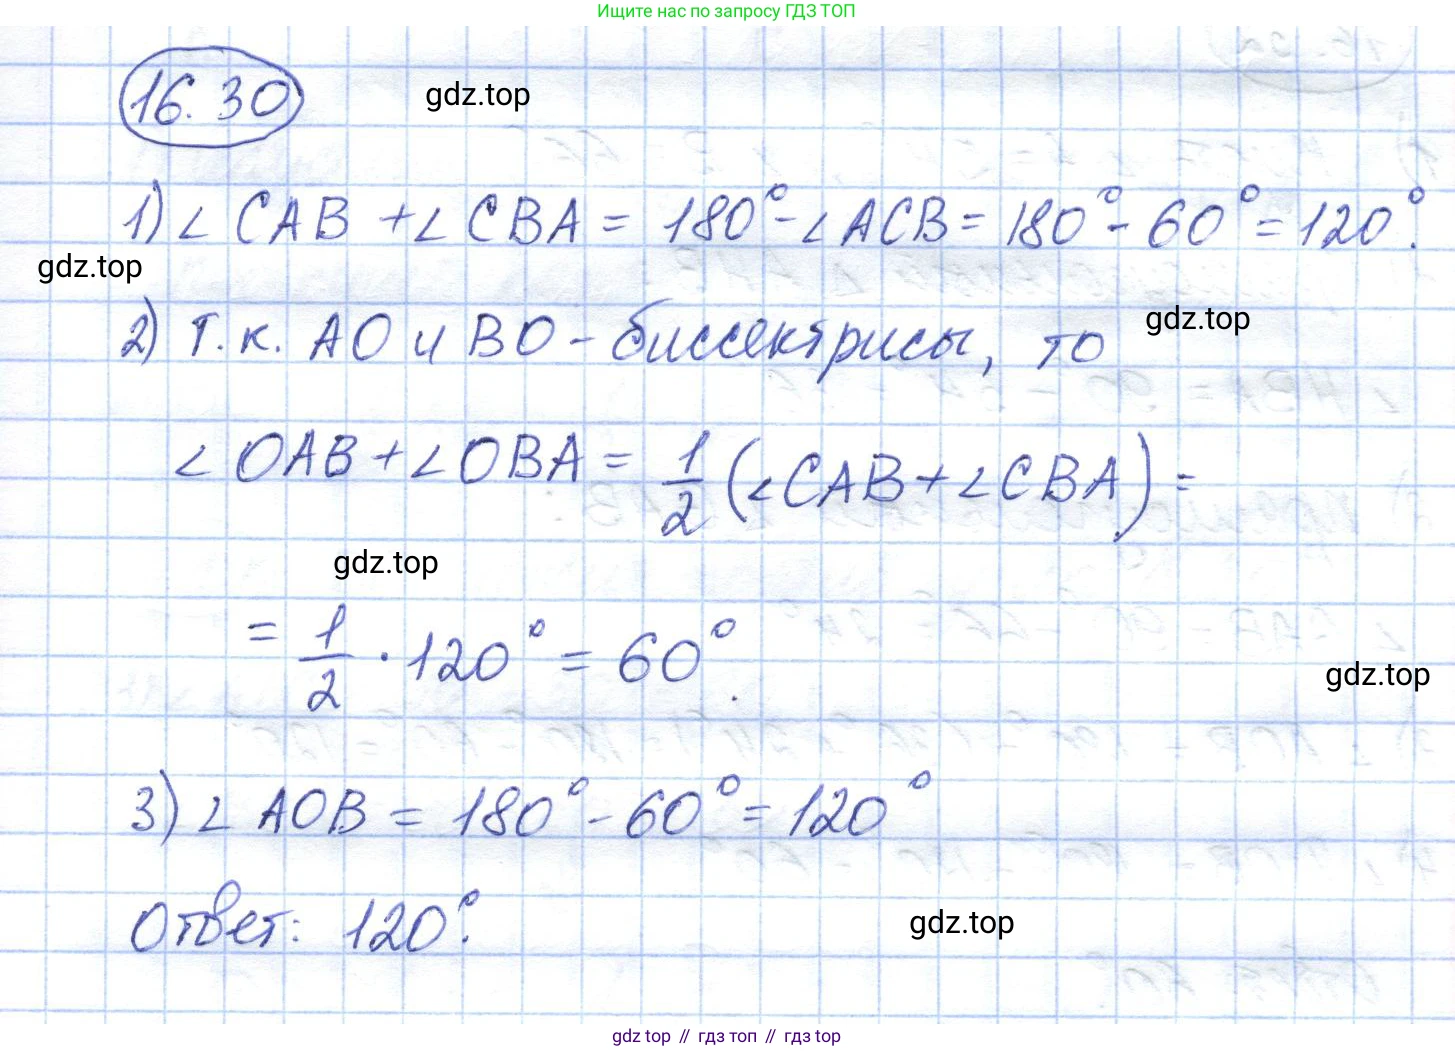 Ищите нас по запросу ГДЗ ТОП
16.30
gdz.top
1) ∠ CAB + ∠ CBA = 180° - ∠ ACB = 180° - 60° = 120°.
gdz.top
2) Т.к. AO и BO - биссектрисы, то
gdz.top
∠ OAB + ∠ OBA = 1/2 (∠ CAB + ∠ CBA) =
gdz.top
= 1/2 · 120° = 60°.
gdz.top
3) ∠ AOB = 180° - 60° = 120°
Ответ: 120°.
gdz.top
gdz top // гдз топ // gdz top